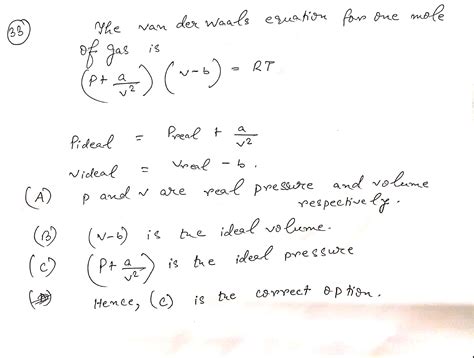 33
The van der Waals equation for one mole
of gas is
(P + a/v²) (v-b) = RT
Pideal = Preal + a/v²
videal = vreal - b.
(A) p and v are real pressure and volume
respectively.
(B) (v-b) is the ideal volume.
(C) (P + a/v²) is the ideal pressure
Hence, (C) is the correct option.